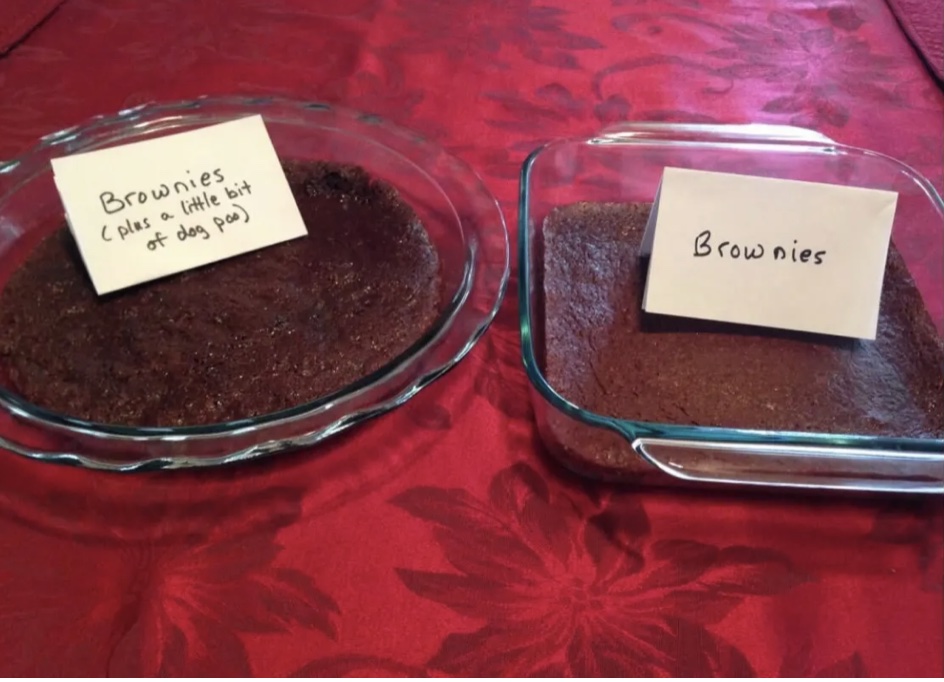 Brownies
(plus a little bit
of dog poo)
Brownies